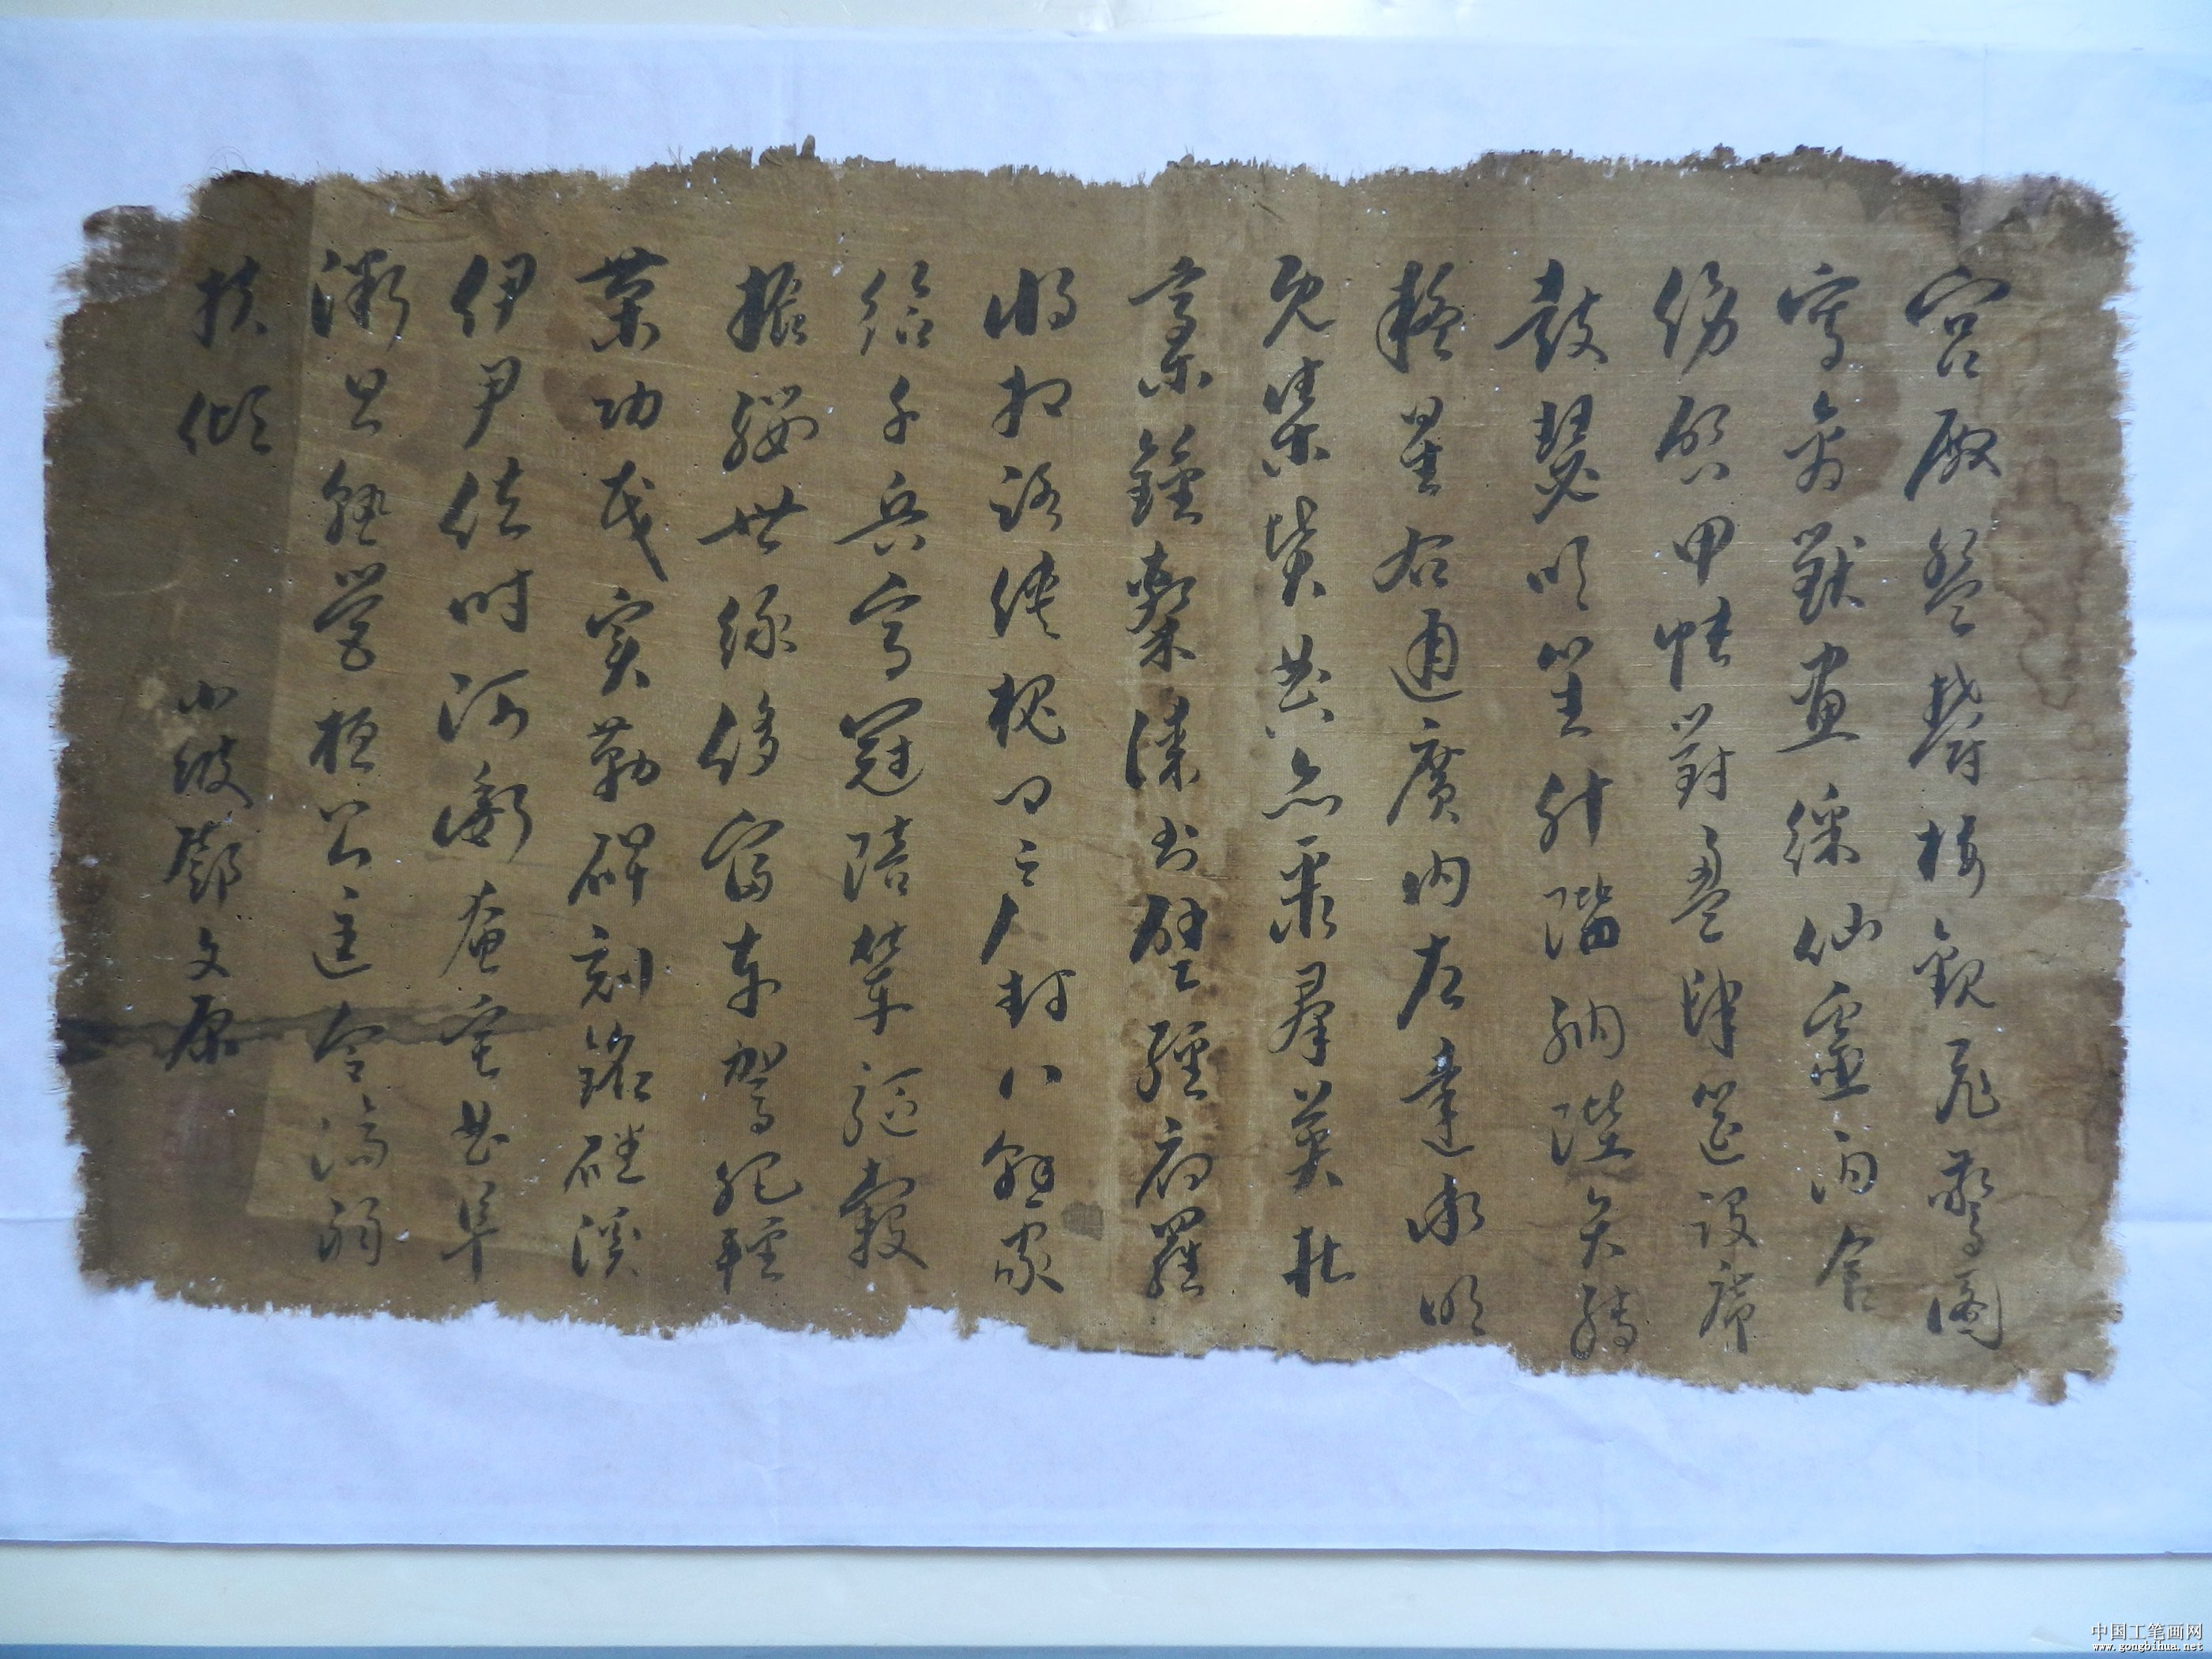 宮殿盤鬱樓觀飛驚圖
寫禽獸畫綵仙靈丙舍
傍啓甲帳對楹肆筵設席
鼓瑟吹笙升階納陛弁轉
疑星右通廣內左達承明
既集墳典亦聚羣英杜
稾鍾隸漆書壁經府羅
將相路俠槐卿戶封八縣家
給千兵高冠陪輦驅轂
振纓世祿侈富車駕肥輕
策功茂實勒碑刻銘磻溪
伊尹佐時阿衡奄宅曲阜
微旦孰營桓公匡合濟弱
扶傾
鄧文原
中国工笔画网
www.gongbihua.net